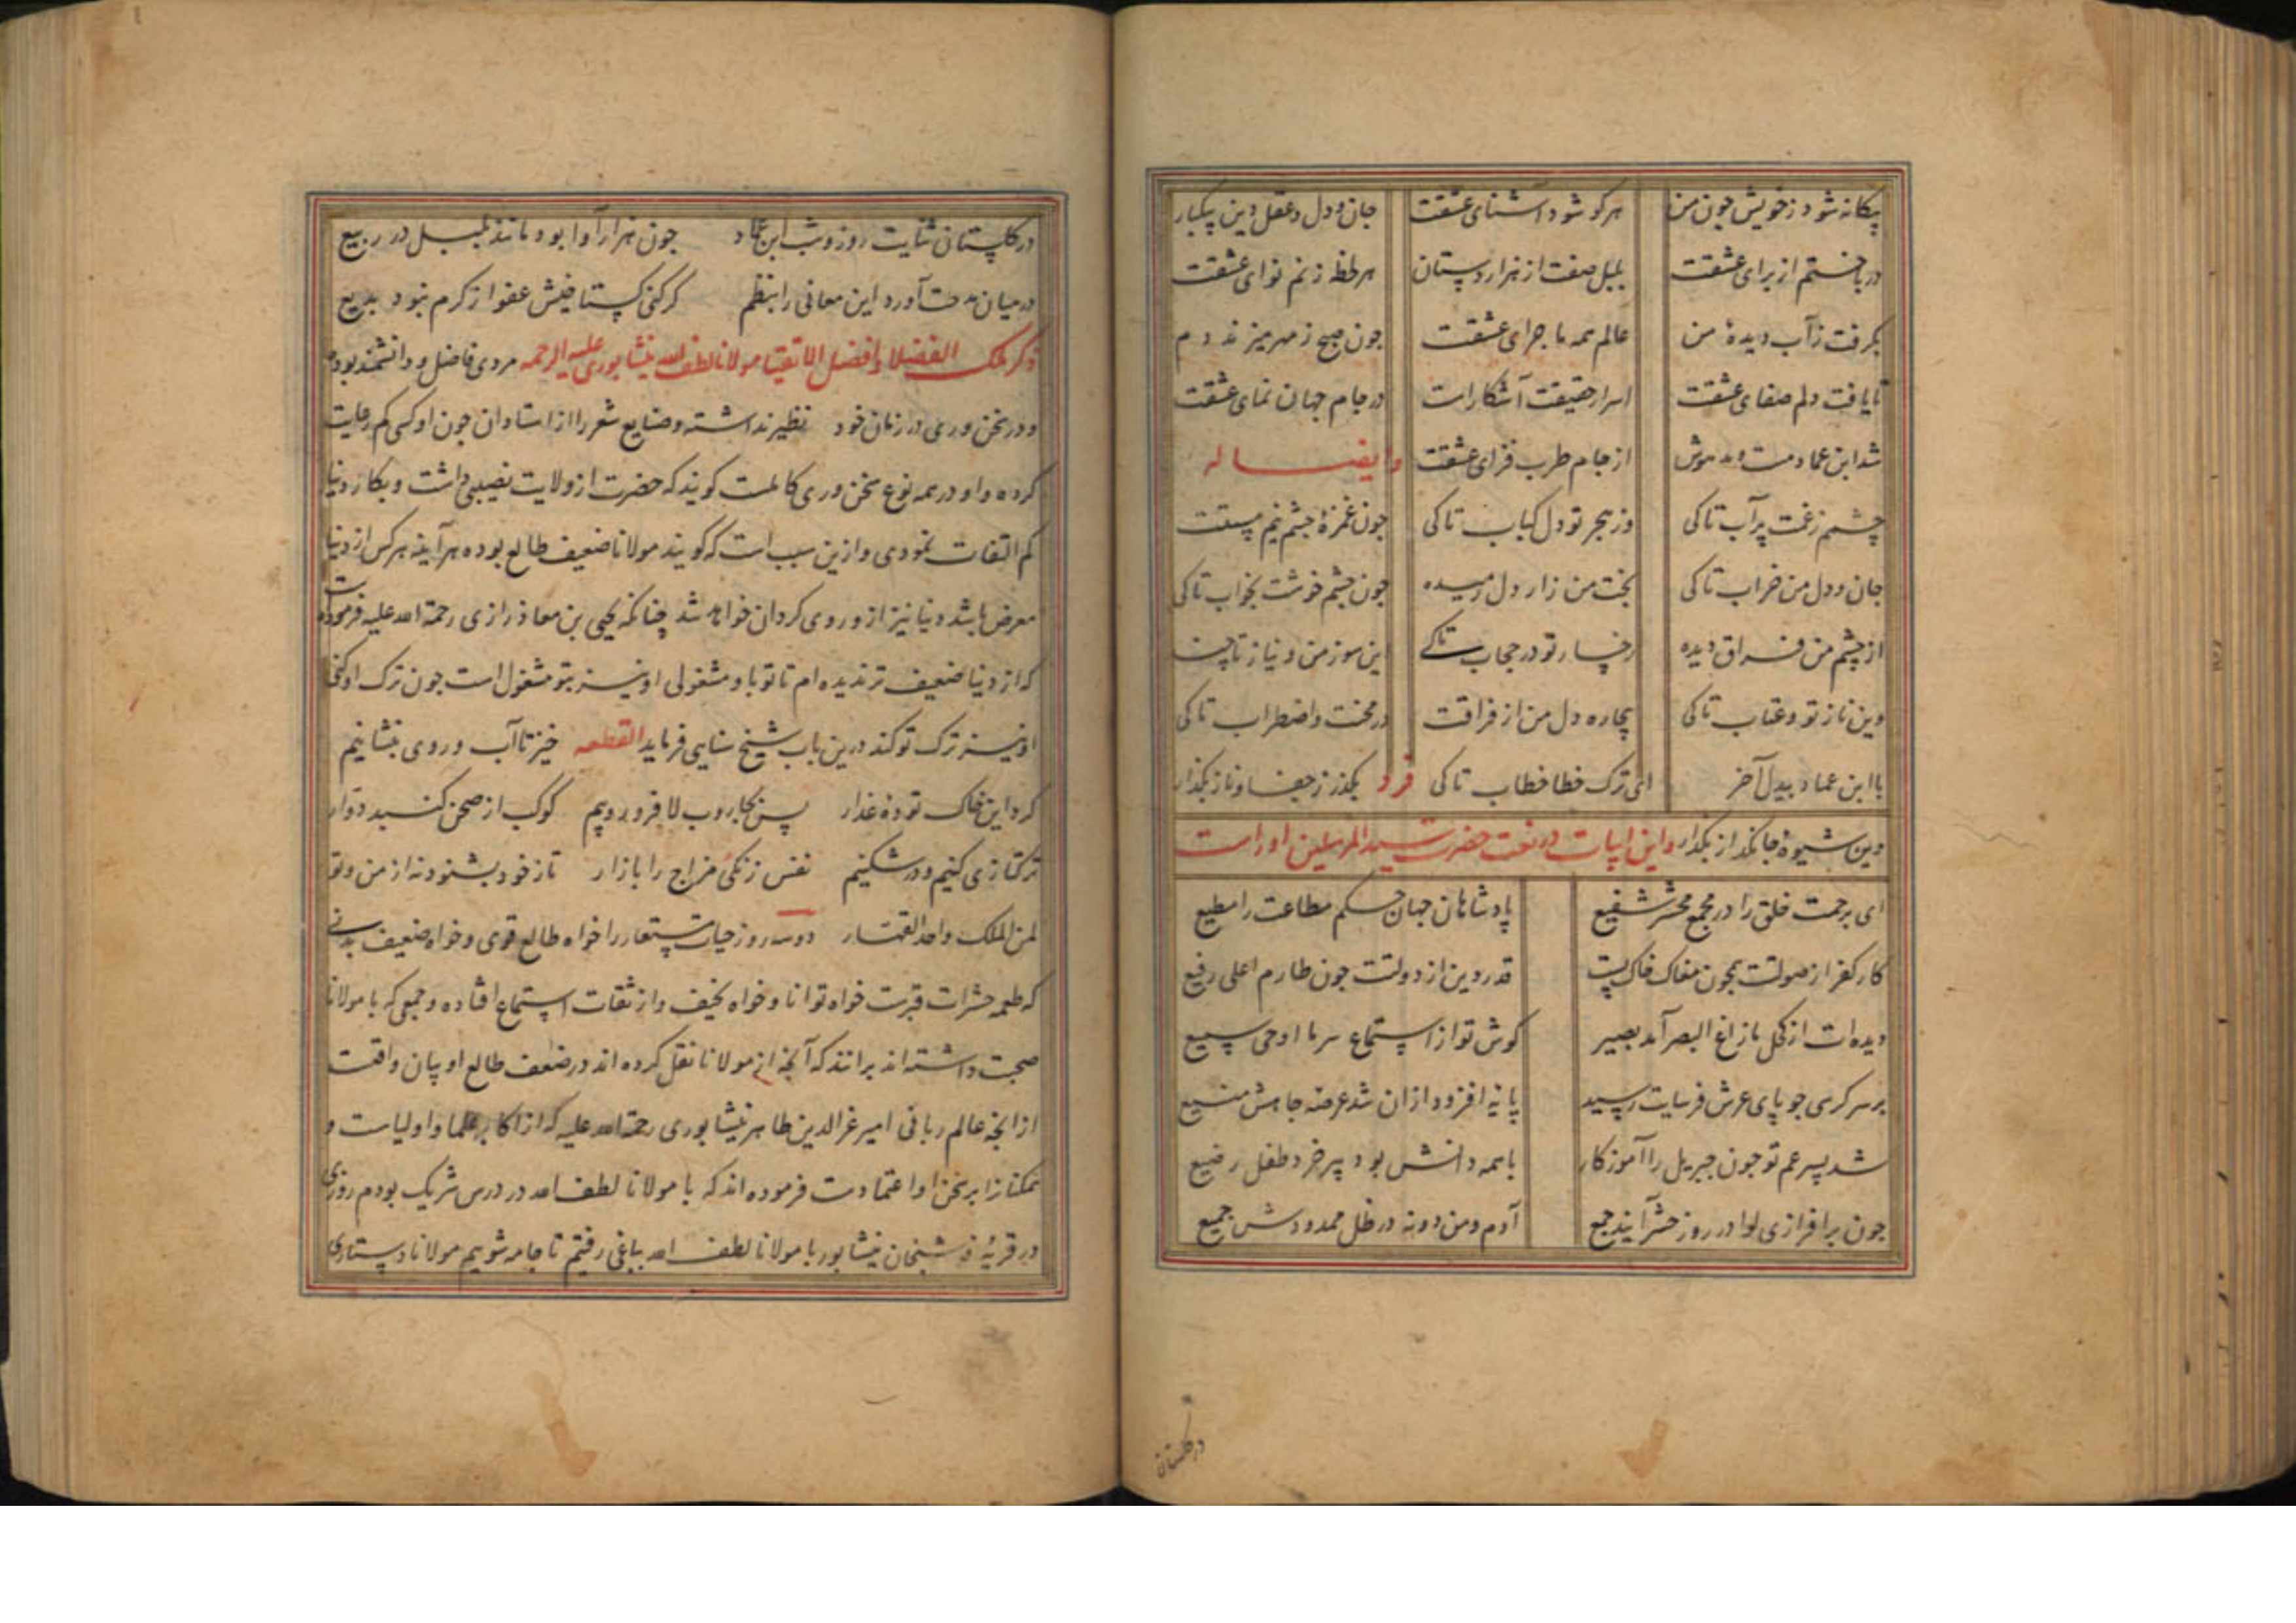 بیکانه شود زخویش جون من هرکو شود آشنای عشقت جان ودل وعقل ودین بیکبار
درباختم از برای عشقت بلبل صفت از هزار دستان هر لحظه زنم نوای عشقت
بکرفت زآب دیدهٔ من عالم همه ماجرای عشقت جون صبح زمهر میزند دم
تایافت دلم صفای عشقت اسرار حقیقت آشکارات درجام جهان نمای عشقت
شد ابن عماد مست ومدهوش از جام طرب فزای عشقت وایضا له
چشم زغمت پرآب تاکی وزهجر تو دل کباب تاکی جون غمزهٔ چشم نیم مستت
جان ودل من خراب تاکی بخت من زار دل رمیده جون چشم خوشت بخواب تاکی
از چشم من فراق دیده رخسار تو در حجاب تاکے این سوز من ونیاز تاچند
وین ناز تو وعتاب تاکی بیچاره دل من از فراقت درمحنت واضطراب تاکی
با ابن عماد بیدل آخر ای ترک خطا خطاب تاکی فرد بکذر زجفا وناز بکذار
وین شیوهٔ جانکداز بکذار واین ابیات در نعت حضرت سید المرسلین اوراست
ای برحمت خلق را در مجمع محشر شفیع پادشاهان جهان حکم مطاعت را مطیع
کار کفر از صولتت همچون مغاک خاک پست قدر دین از دولتت جون طارم اعلی رفیع
دیده ات از کحل مازاغ البصر آمد بصیر کوش تو از استماع سر ما اوحی سمیع
برسر کرسی جو پای عرش فرسایت رسید پایه افزود ازان شد عرصه جاهش منیع
شد پسر عم تو جون جبریل را آموزکار باهمه دانش بود پیر خرد طفل رضیع
جون برافرازی لوا در روز حشر آیند جمع آدم ومن دونه در ظل ممدودش جمیع
درکلستان
درکلستان ثنایت روز وشب ابن عماد جون هزار آوا بود مانند بلبل در ربیع
درمیان مدحت آورد این معانی را بنظم کر کنی کستاخیش عفو از کرم نبود بدیع
ذکر ملک الفضلا وافضل الاتقیا مولانا لطف الله نیشابوری علیه الرحمه مردی فاضل ودانشمند بوده
ودر سخن وری در زمان خود نظیر نداشته وصنایع شعر را از استادان جون او کسی کم رعایت
کرده واو در همه نوع سخن وری کاملست کویند که حضرت از ولایت نصیبی داشت وبکار دنیا
کم التفات نمودی وازین سبب است که کویند مولانا ضعیف طالع بوده هر آینه هرکس از دنیا
معرض باشد دنیا نیز از و روی کردان خواهد شد چنانکه یحیی بن معاذ رازی رحمة الله علیه فرموده است
که از دنیا ضعیف تر ندیده ام تا تو باو مشغولی او نیز بتو مشغول است جون ترک او کنی
او نیز ترک تو کند درین باب شیخ سنایی فرماید القطعه خیز تا آب وروی بنشانیم
کرد این خاک تودهٔ غدار پس بجاروب لا فرو روبیم کوکب از صحن کنبد دوار
ترکتازی کنیم ودر شکنیم نفس زنکی مزاج را بازار تا زخود بشنود نه از من وتو
لمن الملک واحد القهار دوسه روز حیات مستعار را خواه طالع قوی وخواه ضعیف بدنے
که طعمه حشرات قبرست خواه توانا وخواه نحیف واز ثقات استماع افتاده وجمعی که با مولانا
صحبت داشته اند برانند که آنچه از مولانا نقل کرده اند در ضعف طالع او بیان واقعست
از انجه عالم ربانی امیر عزالدین طاهر نیشابوری رحمة الله علیه که از اکابر علما واولیاست و
همکنانرا برسخن او اعتمادست فرموده اند که با مولانا لطف الله در درس شریک بودم روزی
در قریهٔ نیشابور با مولانا لطف الله بباغی رفتیم تا جامه شوییم مولانا دستاری